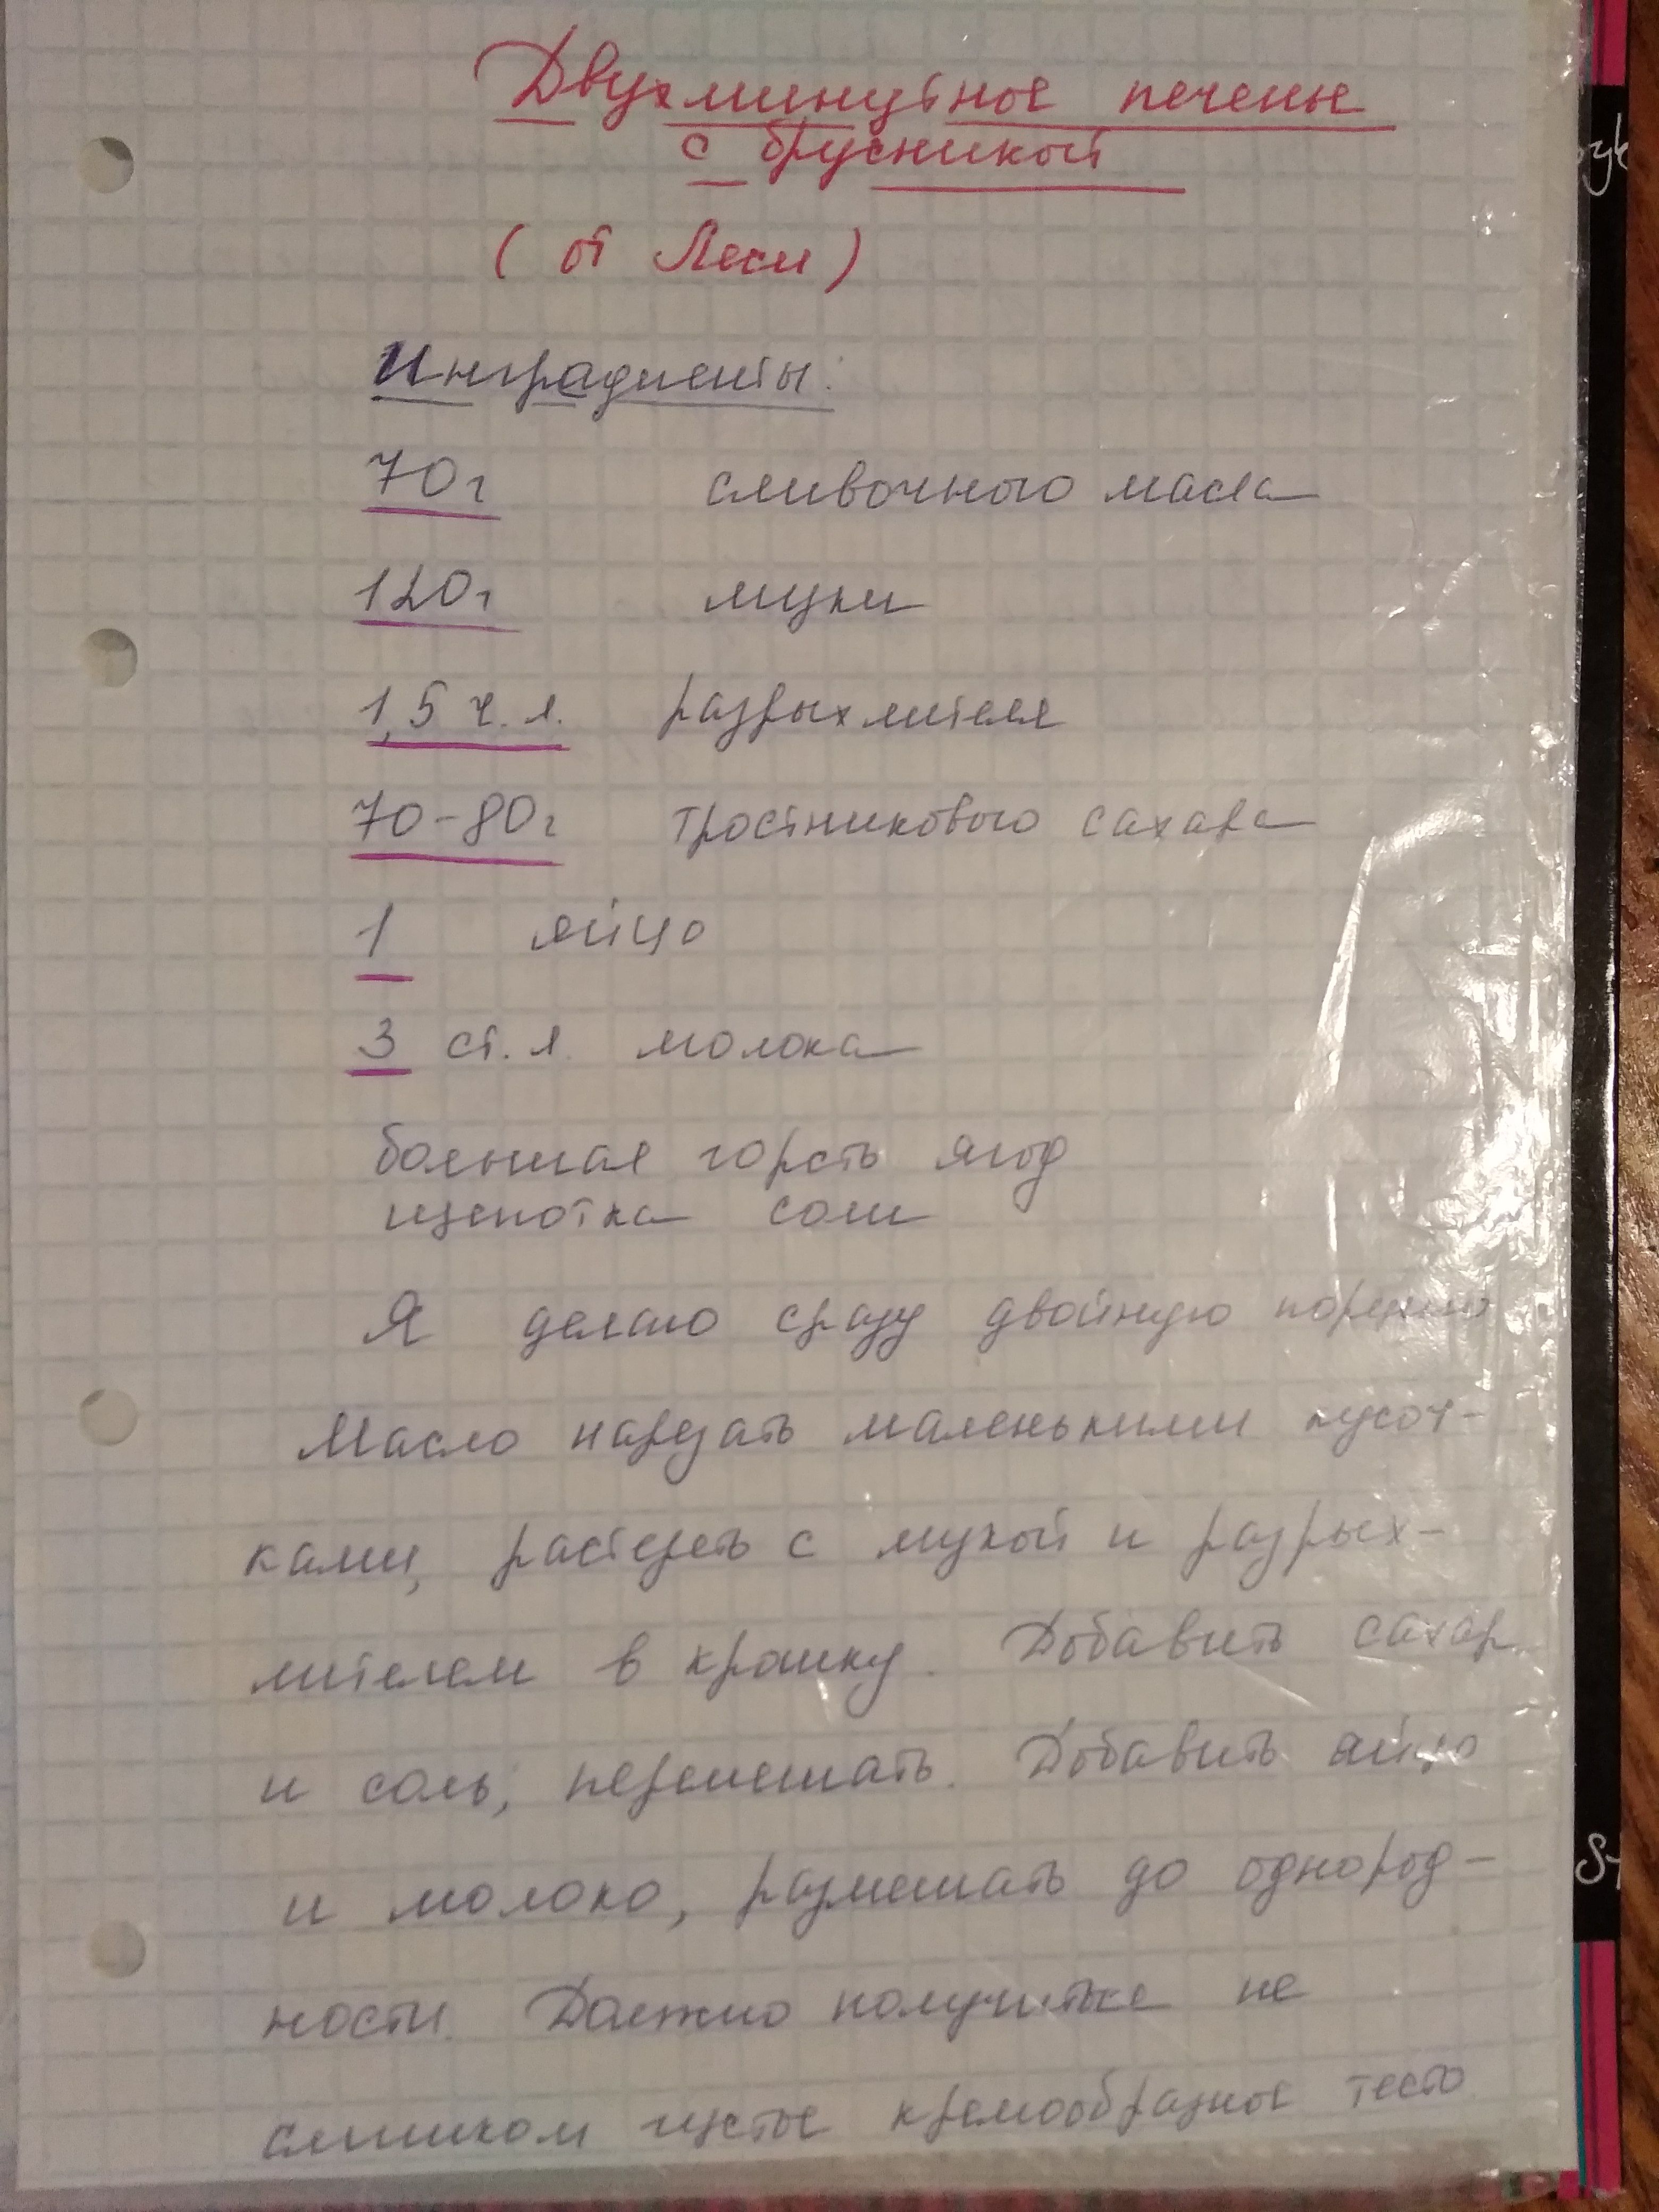 Двухминутное печенье
с брусникой
(от Леси)
Инградиенты:
70г сливочного масла
120г муки
1,5 ч. л. разрыхлителя
70-80г тростникового сахара
1 яйцо
3 ст. л. молока
большая горсть ягод
щепотка соли
Я делаю сразу двойную порцию
Масло нарезать маленькими кусоч-
ками, растереть с мукой и разрых-
лителем в крошку. Добавить сахар
и соль, перемешать. Добавить яйцо
и молоко, размешать до однород-
ности. Должно получиться не
слишком густое кремообразное тесто